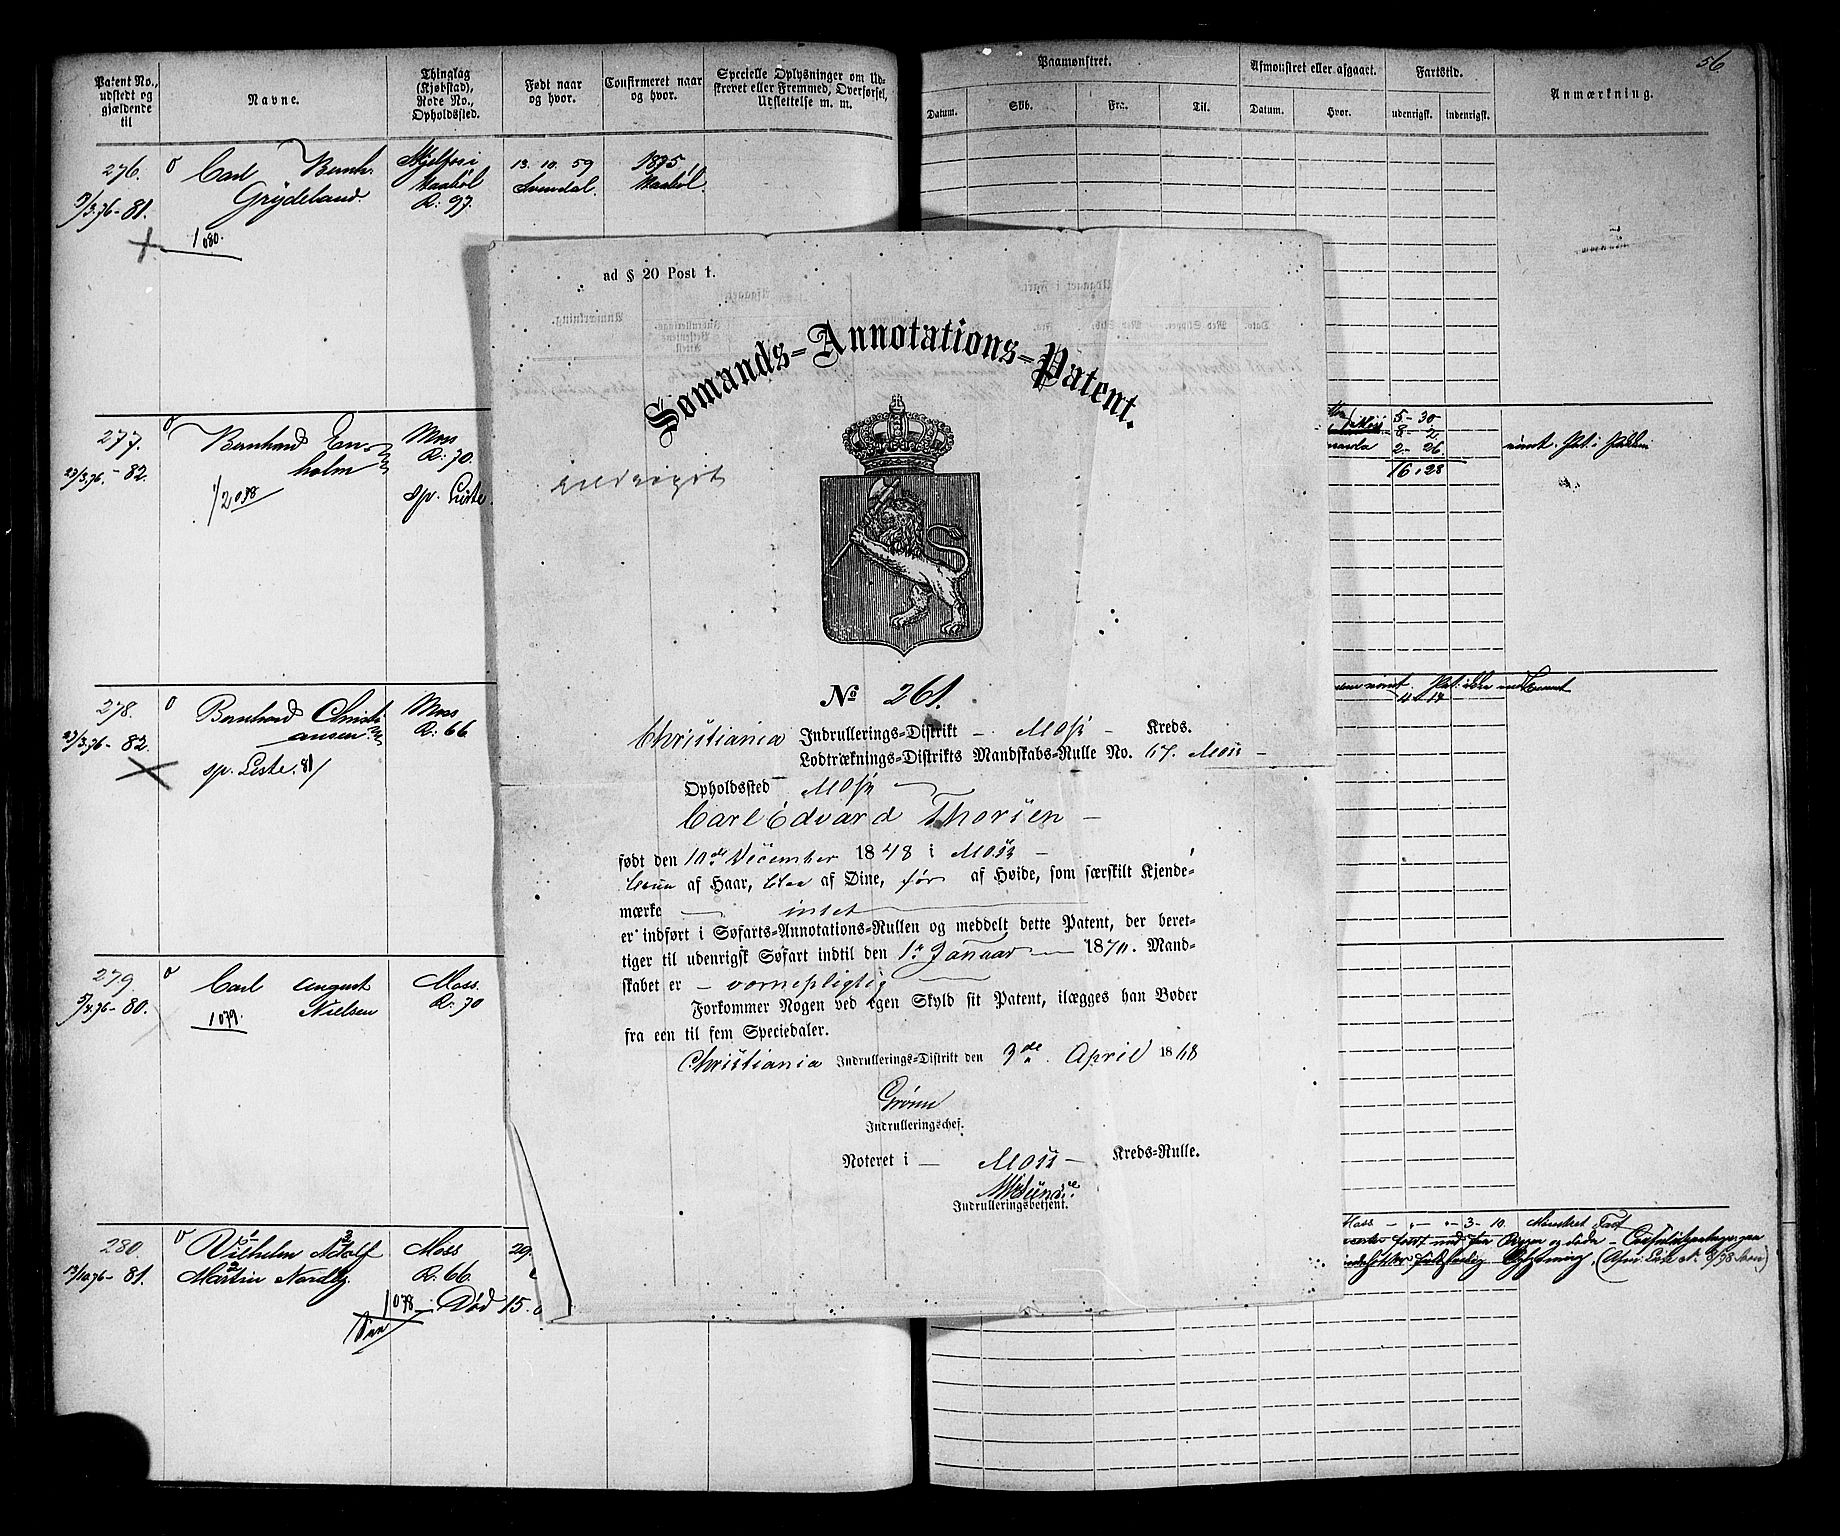 56
Patent No.,
udstedt og
gjældende
til
Navne.
Thinglag
(Kjøbstad),
Rode No.,
Opholdssted.
Født naar
og hvor.
Confirmeret naar
og hvor.
Specielle Oplysninger om Ud-
skrevet eller Fremmed, Overførsel,
Udslettelse m. m.
Paamønstret.
Datum.
Skib.
Fra.
Til.
Afmønstret eller afgaaet.
Datum.
Hvor.
Fartstid.
udenrigsk.
indenrigsk.
Anmærkning.
276.
9/3.76-81.
Carl Bernh.
Grydeland.
1080.
Vaabøl
R: 97.
13. 10. 59
Svendal.
1875
Vaabøl.
277.
23/3.76-82.
Bernhard En-
holm
Moss
R: 70.
sp. Liste.
5- 30
8- 2
2- 26.
16.28
278.
23/3.76-82.
Bernhard Christi-
ansen
sp. Liste. 81/
Moss
R: 66
279
5/4.76-80.
Carl August
Nielsen
1079.
Moss.
R: 70
280.
13/10 76-81.
Vilhelm Adolf
Martin Nordby
1078
Død 15.
Moss
R: 66.
29.
Moss 3- 10.
ad § 20 Post 1.
Sømands-Annotations-Patent.
No 261.
Christiania Indrullerings-Distrikt - Moss - Kreds.
Lodtræknings-Distrikts Mandskabs-Rulle No. 67. Moss -
Opholdssted Moss
Carl Edvard Thorsen -
født den 10de December 1848 i Moss -
brun af Haar, blaa af Øine, før af Høide, som særskilt Kjende-
mærke intet
er indført i Søfarts-Annotations-Rullen og meddelt dette Patent, der beret-
tiger til udenrigsk Søfart indtil den 1ste Januar 1870. Mand-
skabet er - vornepligtig
Forkommer Nogen ved egen Skyld sit Patent, ilægges han Bøder
fra een til fem Speciedaler.
Christiania Indrullerings-Distrikt den 3de April 1868
Grønn
Indrulleringschef.
Noteret i - Moss - Kreds-Rulle.
Indrulleringsbetjent.